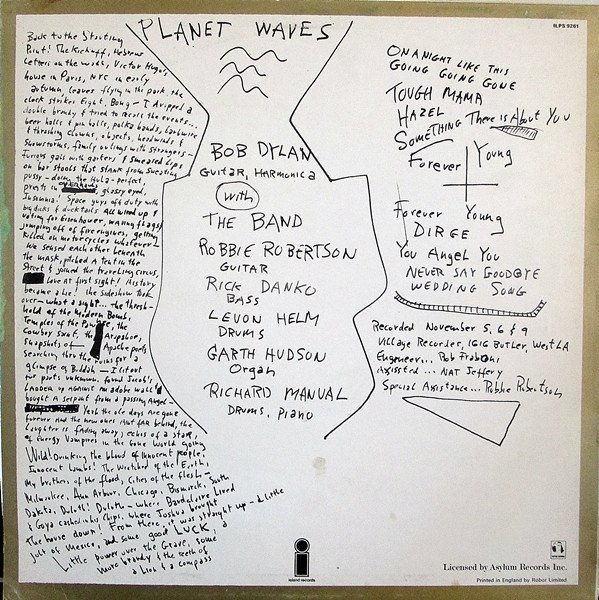 PLANET WAVES
ILPS 9261
Back to the Starting
Point! The Kickoff, Hebrew
Letters on the walls, Victor Hugo's
house in Paris, NYC in early
autumn, leaves flying in the park, the
clock strikes Eight. Bong - I dropped a
double brandy & tried to recall the events...
beer halls & pin balls, polka bands, barbwire
& thrashing clowns, objects, headwinds &
Snowstorms, family outings with strangers -
Furious gals with garters & smeared lips
on bar stools that stank from sweating
pussy - doing the Hula - perfect,
priests in, glassy eyed,
Insomnia! Space guys off duty with
big dicks & ducktails All wired up &
voting for Eisenhower, waving flags &
jumping off of fire engines, getting
killed on motorcycles whatever -
We sensed each other beneath
the mask, pitched a tent in the
Street & joined the traveling circus,
Love at first sight! History
became a lie! the sideshow took
over - what a sight... the thresh-
hold of the Modern Bomb,
Temples of the Pawnee, the
Cowboy saint, the Arapahoe,
snapshots of Apache poets
searching thru the ruins for a
glimpse of Buddah - I lit out
for parts unknown, found Jacob's
Ladder up against an adobe wall &
bought a serpent from a passing angel -
Yeah the ole days are gone
forever and the new ones Aint far behind, the
Laughter is fading away, echos of a star,
of Energy Vampires in the Gone World going
Wild! Drinking the blood of innocent people,
Innocent Lambs! The Wretched of the Earth,
My brothers of the flood, Cities of the flesh -
Milwaukee, Ann Arbor, Chicago, Bismarck, South
Dakota, Duluth! Duluth - where Baudelaire Lived
& Goya cashed in his Chips, where Joshua brought
The house down! From there, it was straight up - a little
jolt of Mexico, and some good LUCK, a
Little power over the Grave, some
more brandy & the teeth of
a Lion & a compass
BOB DYLAN
GUITAR, HARMONICA
with
THE BAND
ROBBIE ROBERTSON
GUITAR
RICK DANKO
BASS
LEVON HELM
DRUMS
GARTH HUDSON
Organ
RICHARD MANUAL
DRUMS, PIANO
ON A NIGHT LIKE THIS
GOING GOING GONE
TOUGH MAMA
HAZEL
SOMETHING There is About You
Forever Young
Forever Young
DIRGE
You Angel You
NEVER SAY GOODBYE
WEDDING SONG
Recorded November 5, 6 & 9
Village Recorder, 1616 Butler, West LA
Engineer... Rob Fraboni
Assisted... NAT Jeffery
Special Assistance... Robbie Robertson
island records
Licensed by Asylum Records Inc.
Printed in England by Robor Limited